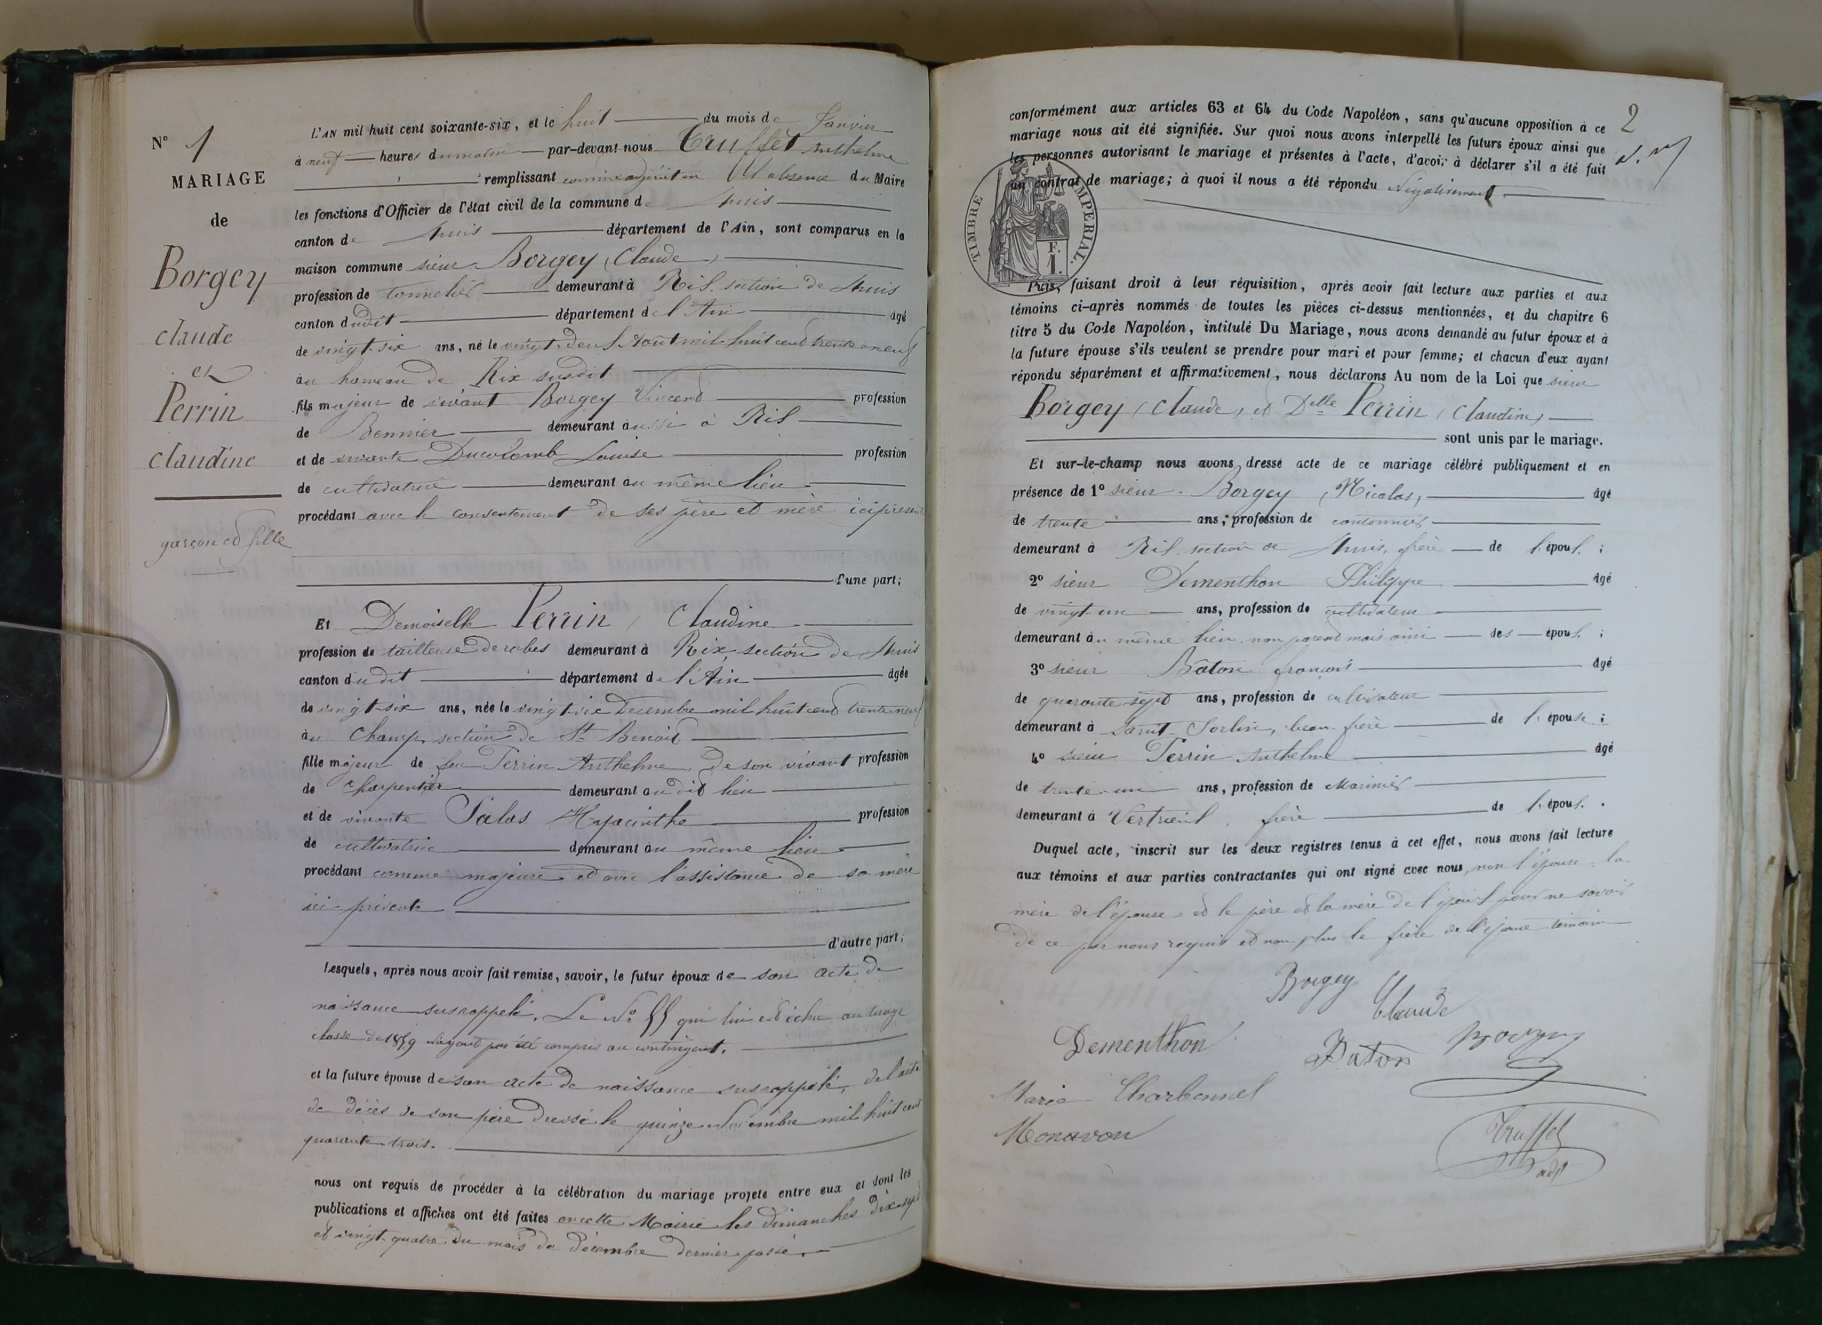 N° 1
MARIAGE
de
Borgey
claude
et
Perrin
claudine
garçon et fille
L'AN mil huit cent soixante-six, et le huit du mois de Janvier
à neuf heures du matin par-devant nous Truffet Anthelme
remplissant comme adjoint en l'absence du Maire
les fonctions d'Officier de l'état civil de la commune d
canton de département de l'Ain, sont comparus en la
maison commune sieur Borgey (Claude)
profession de tonnelier demeurant à Rix section de
canton dudit département de l'Ain âgé
de vingt six ans, né le vingt deux Aout mil huit cent trente neuf
au hameau de Rix susdit
fils majeur de vivant Borgey Vincent profession
de demeurant aussi à Rix
et de vivante Ducolomb Louise profession
de cultivatrice demeurant au même lieu
procédant avec le consentement de ses père et mère ici présents
d'une part;
Et Demoiselle Perrin, Claudine
profession de tailleuse de robes demeurant à Rix section de
canton dudit département de l'Ain âgée
de vingt six ans, née le vingt six decembre mil huit cent trente neuf
au Champ, section de St Benoit
fille majeur de feu Perrin Anthelme, de son vivant profession
de charpentier demeurant audit lieu
et de vivante Salas Hyacinthe profession
de cultivatrice demeurant au même lieu
procédant comme majeure et avec l'assistance de sa mère
ici présente
d'autre part.
Lesquels, après nous avoir fait remise, savoir, le futur époux de son acte de
naissance susrappelé. Le N° 55 qui lui est échu au tirage
classe de 1859 n'ayant pas été compris au contingent.
et la future épouse de son acte de naissance susrappelé, de l'acte
de décès de son père dressé le quinze Novembre mil huit cent
quarante trois.
nous ont requis de procéder à la célébration du mariage projeté entre eux et dont les
publications et affiches ont été faites en cette Mairie les dimanches dix sept
et vingt quatre du mois de décembre dernier passé.
2
conformément aux articles 63 et 64 du Code Napoléon, sans qu'aucune opposition à ce
mariage nous ait été signifiée. Sur quoi nous avons interpellé les futurs époux ainsi que
les personnes autorisant le mariage et présentes à l'acte, d'avoir à déclarer s'il a été fait
un contrat de mariage; à quoi il nous a été répondu négativement
TIMBRE IMPERIAL
F.
1.
Puis, faisant droit à leur réquisition, après avoir fait lecture aux parties et aux
témoins ci-après nommés de toutes les pièces ci-dessus mentionnées, et du chapitre 6
titre 5 du Code Napoléon, intitulé Du Mariage, nous avons demandé au futur époux et à
la future épouse s'ils veulent se prendre pour mari et pour femme; et chacun d'eux ayant
répondu séparément et affirmativement, nous déclarons Au nom de la Loi que sieur
Borgey (Claude) et Delle Perrin (Claudine)
sont unis par le mariage.
Et sur-le-champ nous avons dressé acte de ce mariage célébré publiquement et en
présence de 1° sieur Borgey (Nicolas) âgé
de trente ans, profession de cantonnier
demeurant à Rix section de frère de l'époux;
2° sieur Dementhon Philippe âgé
de vingt un ans, profession de cultivateur
demeurant au même lieu, non parent mais ami des époux;
3° sieur Baton françois âgé
de quarante sept ans, profession de cultivateur
demeurant à Saint Sorlin, beau frère de l'épouse;
4° sieur Perrin Anthelme âgé
de trente un ans, profession de Marinier
demeurant à Vertrieux, frère de l'épous.
Duquel acte, inscrit sur les deux registres tenus à cet effet, nous avons fait lecture
aux témoins et aux parties contractantes qui ont signé avec nous, non l'épouse, la
mère de l'épouse et le père et la mère de l'époux pour ne savoir
de ce par nous requis et non plus le frère de l'épouse témoin
Borgey
Claude
Dementhon
Baton
Borgey
Marie Charbonnel
Monavon
Truffet
adjt